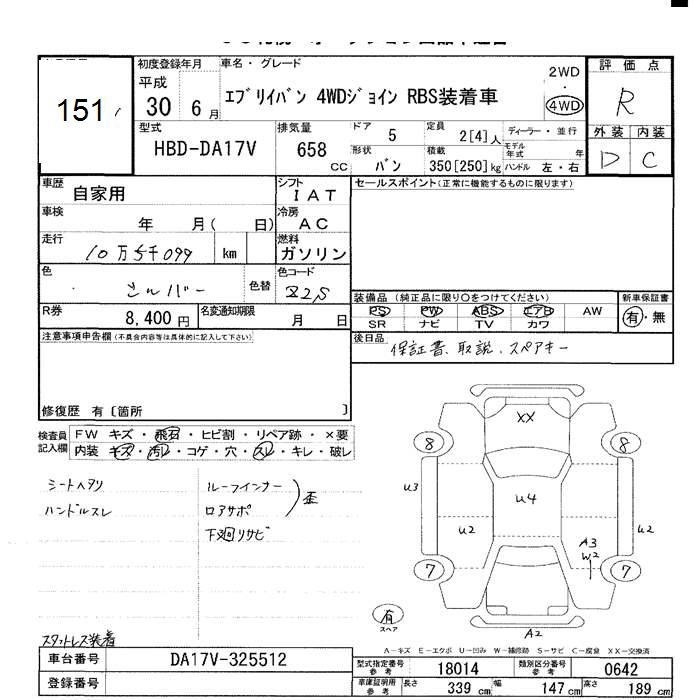 151
初度登録年月
平成
30 6 月
車名・グレード
エブリイバン 4WDジョイン RBS装着車
2WD
・
4WD
評 価 点
R
外装 内装
D C
型式
HBD-DA17V
排気量
658
CC
ドア 5
形状 バン
定員 2[4] 人
積載 350[250] kg
ディーラー・並行
モデル年式 年
ハンドル 左・右
車歴
自家用
シフト
I A T
セールスポイント(正常に機能するものに限ります)
車検
年 月( 日)
冷房
A C
走行
10万5千099 km
燃料
ガソリン
色
シルバー
色替
色コード
Z2S
R券
8,400 円
名変通知期限
月 日
装備品 (純正品に限り○をつけてください)
PS PW ABS エアB AW
SR ナビ TV カワ
新車保証書
有・無
後日品
保証書、取説、スペアキー
注意事項申告欄(不具合内容等は具体的に記入して下さい)
修復歴 有〔箇所 〕
検査員記入欄
FW キズ・飛石・ヒビ割・リペア跡・×要
内装 キズ・汚レ・コゲ・穴・スレ・キレ・破レ
シートヘタリ
ハンドルスレ
ルーフインナー
ロアサポ
歪
下廻リサビ
スタットレス装着
XX
8 8
U3
U4
U2
U2
A3
W2
7 7
有
スペア
A2
A-キズ E-エクボ U-凹み W-補修跡 S-サビ C-腐食 XX-交換済
車台番号
DA17V-325512
登録番号
型式指定番号 参考
18014
類別区分番号 参考
0642
車庫証明用 参考
長さ 339 cm
幅 147 cm
高さ 189 cm